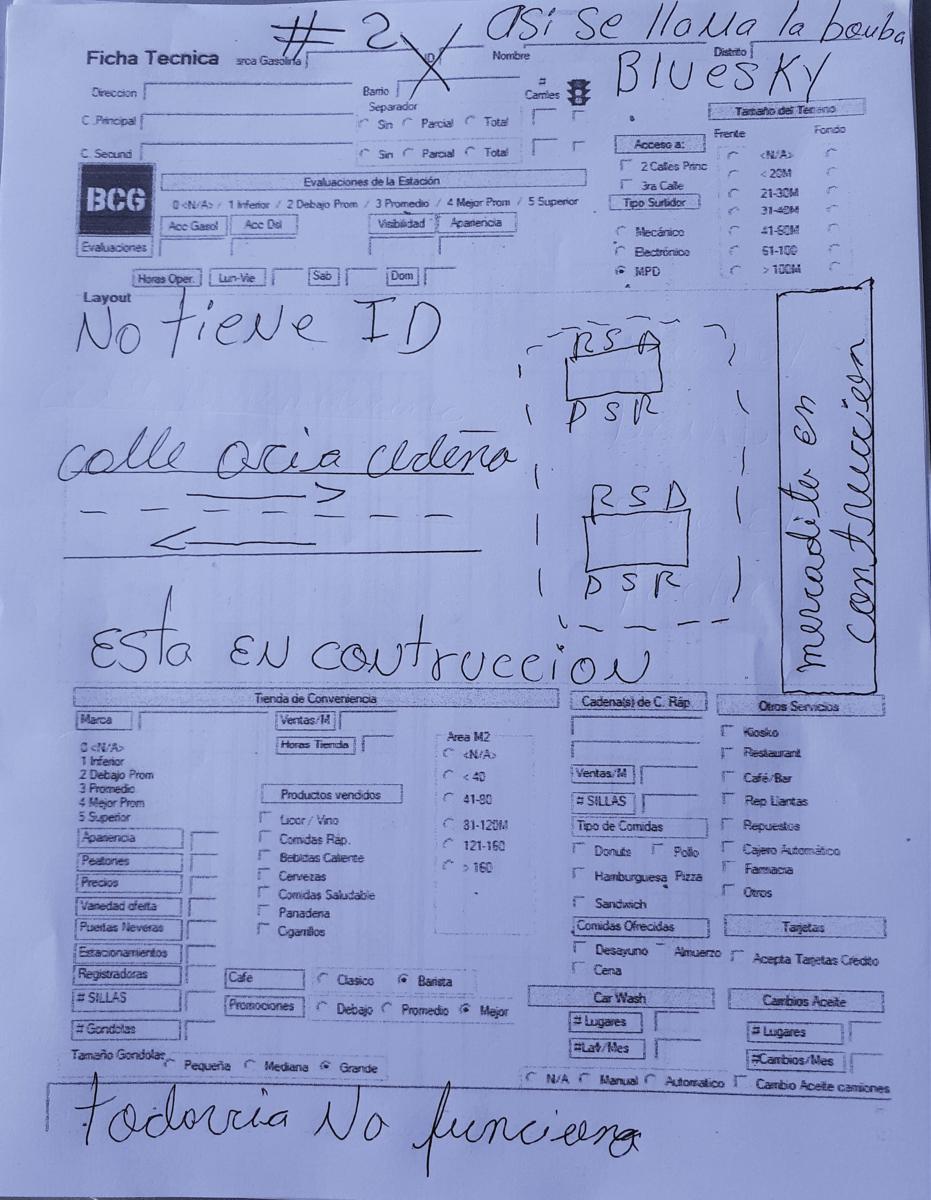 # 2 X así se llama la bomba
Ficha Tecnica
Nombre
Distrito
BlueSKY
Direccion
Barrio
# Carriles
Separador
C .Principal
Sin Parcial Total
C. Secund
Sin Parcial Total
Tamaño del Terreno
Frente Fondo
<N/A>
< 20M
21-30M
31-40M
> 100M
Acceso a:
2 Calles Princ
3ra Calle
Tipo Surtidor
Mecánico
Electrónico
MPD
BCG
Evaluaciones de la Estación
0 <N/A> / 1 Inferior / 2 Debajo Prom / 3 Promedio / 4 Mejor Prom / 5 Superior
Acc Gasol Acc Dsl Visibilidad Apariencia
Evaluaciones
Horas Oper. Lun-Vie Sab Dom
Layout
No tiene ID
R S D
D S R
R S D
D S R
mercadito en
contruccion
calle
Esta EN contruccion
Tienda de Conveniencia
Marca
Ventas/M
Horas Tienda
0 <N/A>
1 Inferior
2 Debajo Prom
3 Promedio
4 Mejor Prom
5 Superior
Apariencia
Peatones
Precios
Variedad oferta
Puertas Neveras
Estacionamientos
Registradoras
# SILLAS
# Gondolas
Productos vendidos
Licor / Vino
Comidas Ráp.
Bebidas Caliente
Cervezas
Comidas Saludable
Panaderia
Cigarrillos
Area M2
<N/A>
< 40
41-80
81-120M
121-160
> 160
Cafe Clasico Barista
Promociones Debajo Promedio Mejor
Tamaño Gondolas Pequeña Mediana Grande
Cadena(s) de C. Ráp.
Ventas/M
# SILLAS
Tipo de Comidas
Donuts Pollo
Hamburguesa Pizza
Sandwich
Comidas Ofrecidas
Desayuno Almuerzo
Cena
Otros Servicios
Kiosko
Restaurant
Café/Bar
Rep Llantas
Repuestos
Cajero Automático
Farmacia
Otros
Tarjetas
Acepta Tarjetas Crédito
Car Wash
# Lugares
#Lav/Mes
N/A Manual Automatico
Cambios Aceite
# Lugares
#Cambios/Mes
Cambio Aceite camiones
todovvia No funciona